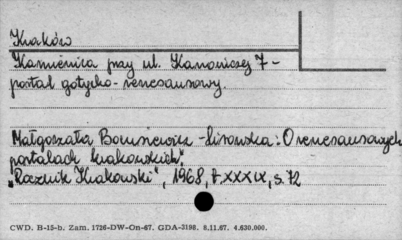 Kraków
Kamienica przy ul. Kanoniczej 7 -
portal gotycko-renesansowy.
Małgorzata Borusiewicz-Lisowska: O renesansowych
portalach krakowskich.
"Rocznik Krakowski", 1968, t. XXXIX, s. 72
CWD. B-15-b. Zam. 1726-DW-On-67. GDA-3198. 8.11.67. 4.630.000.